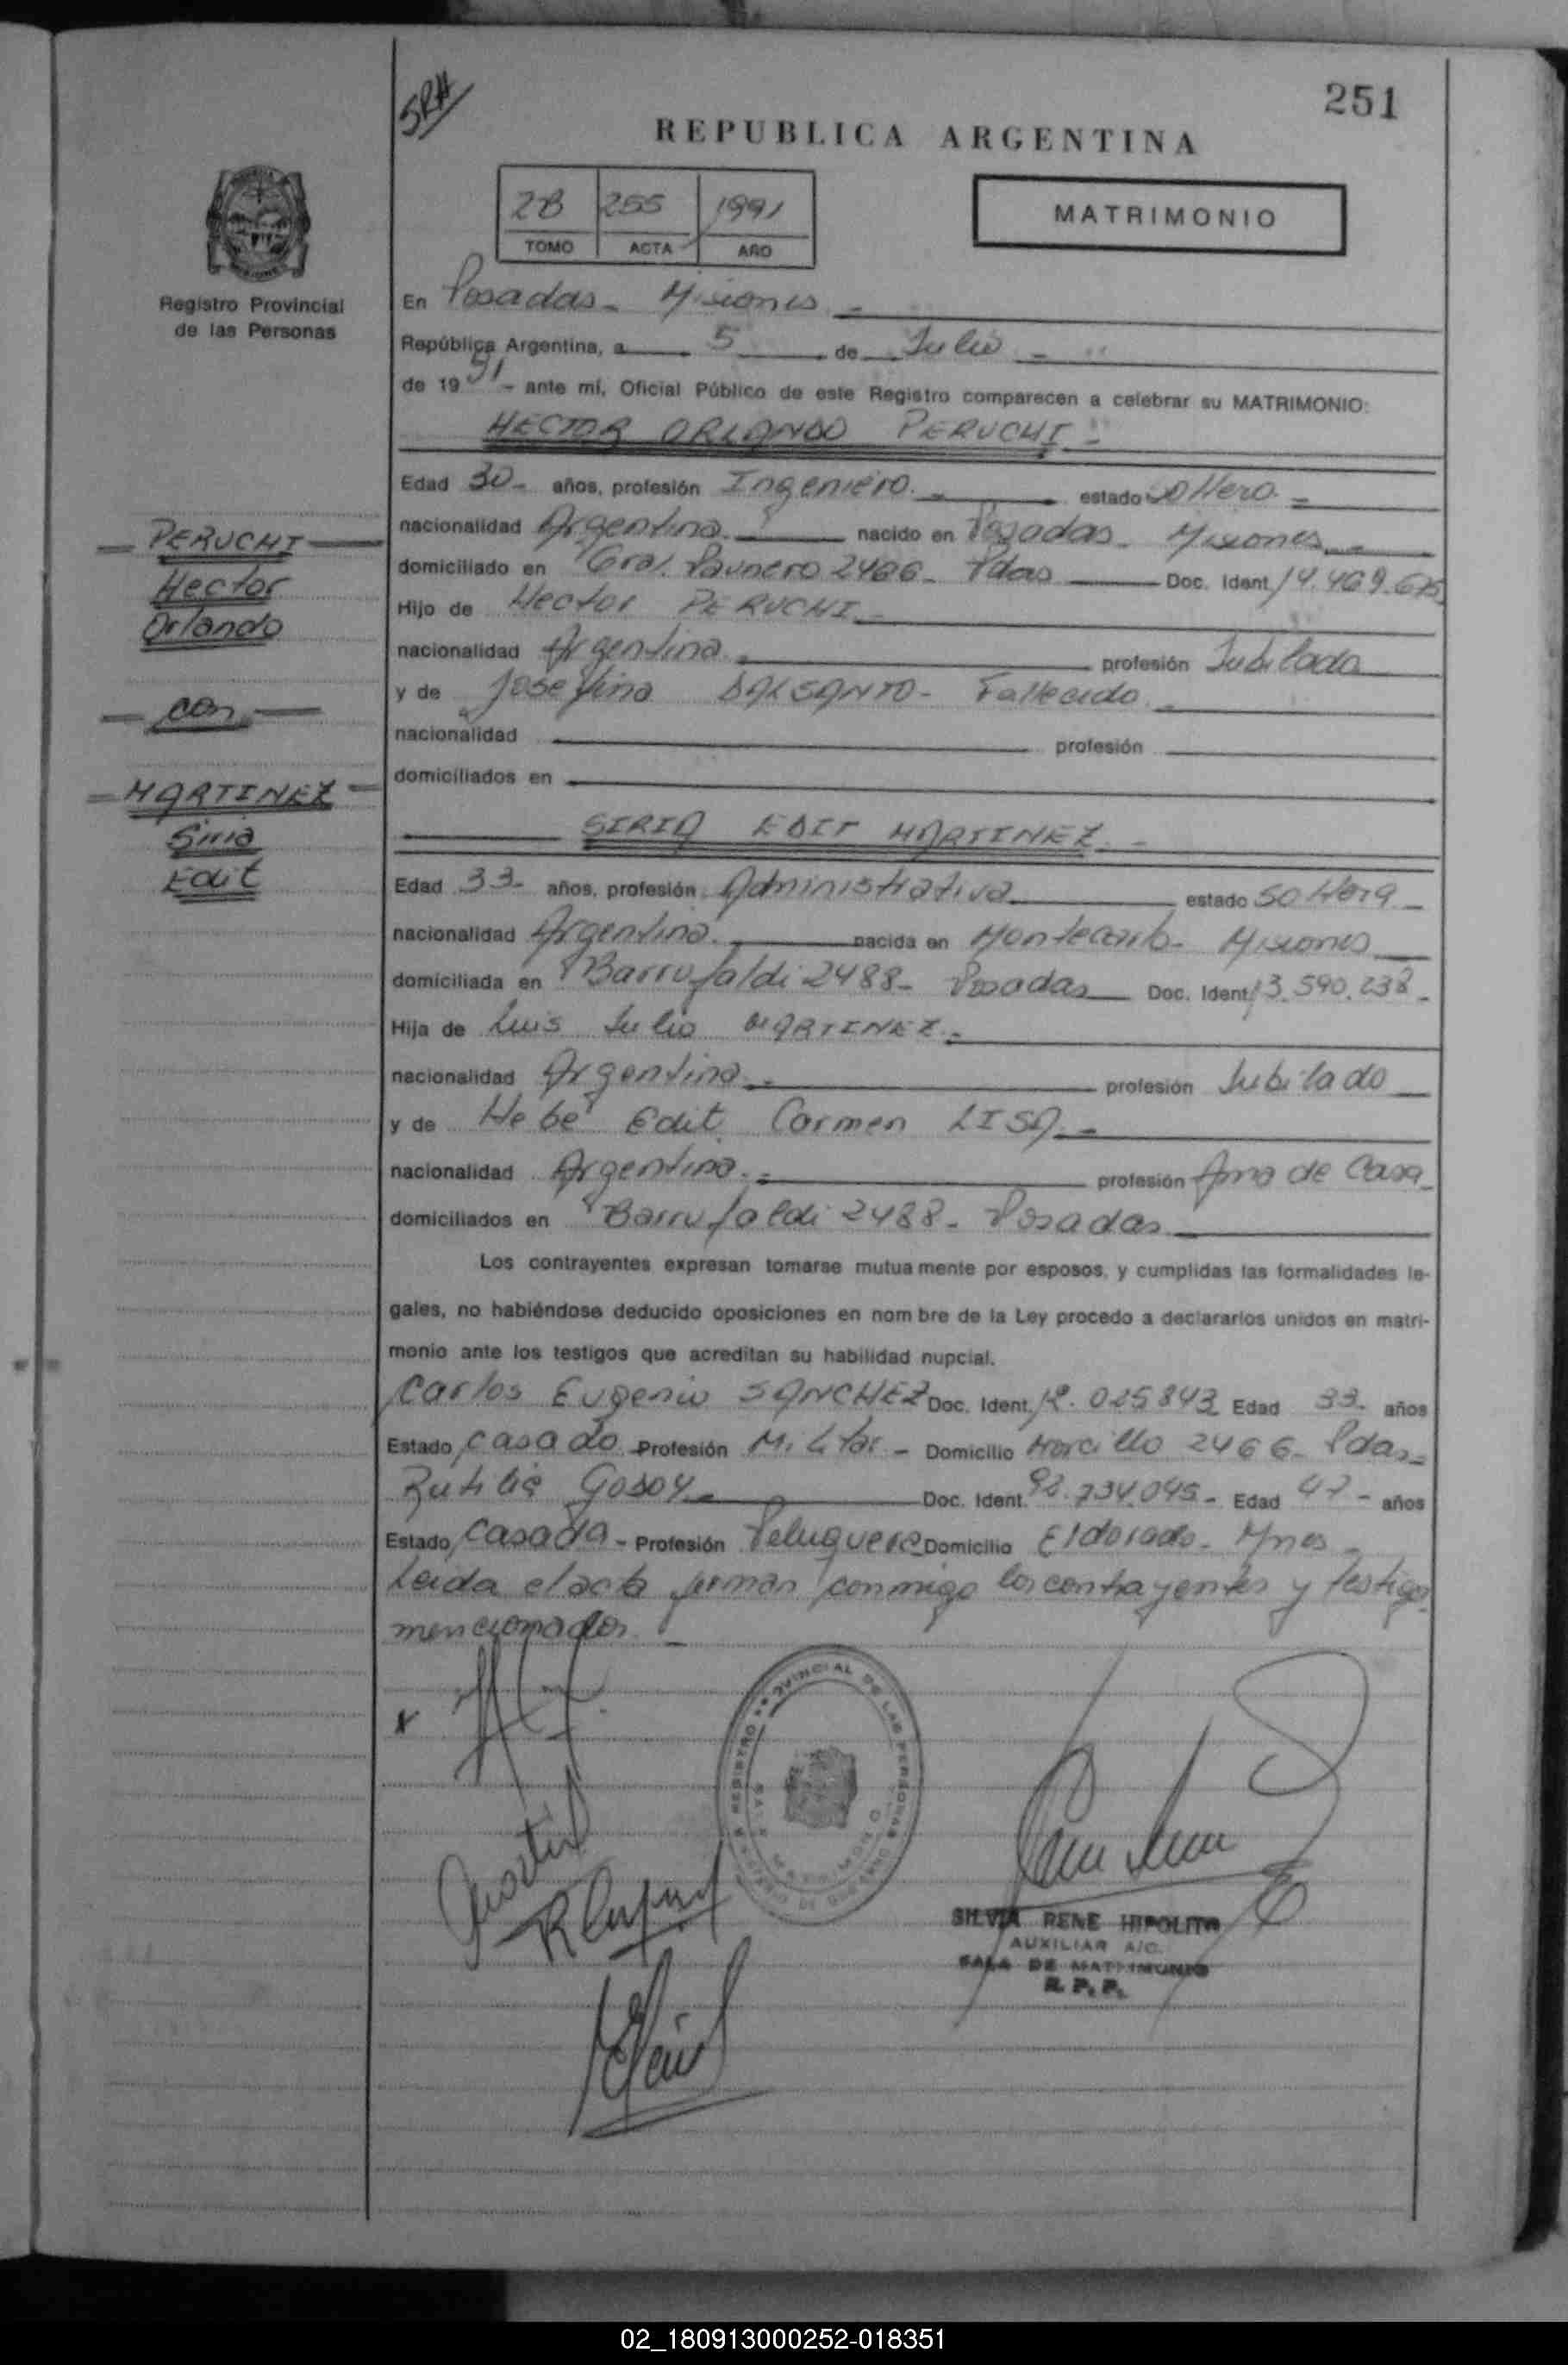 251
SRH
REPUBLICA ARGENTINA
2B 255 1991
TOMO ACTA AÑO
MATRIMONIO
Registro Provincial
de las Personas
En Posadas - Misiones -
República Argentina, a 5 de Julio -
de 1991 - ante mí, Oficial Público de este Registro comparecen a celebrar su MATRIMONIO:
HECTOR ORLANDO PERUCHI -
Edad 30 - años, profesión Ingeniero. - estado Soltero. -
nacionalidad Argentina. nacido en Posadas - Misiones. -
domiciliado en Gral. Paunero 2466 - Pdas Doc. Ident. 14.469.675
Hijo de Hector PERUCHI. -
nacionalidad Argentina. - profesión Jubilado
y de Josefina DALSANTO - Fallecida. -
nacionalidad profesión
domiciliados en
PERUCHI
Hector
Orlando
con
MARTINEZ
Siria
Edit
SIRIA EDIT MARTINEZ. -
Edad 33 - años, profesión Administrativa estado Soltera -
nacionalidad Argentina. - nacida en Montecarlo - Misiones
domiciliada en Barrufaldi 2488 - Posadas Doc. Ident. 13.590.238 -
Hija de Luis Julio MARTINEZ. -
nacionalidad Argentina. - profesión Jubilado
y de Hebe Edit Carmen LISA. -
nacionalidad Argentina. - profesión Ama de Casa -
domiciliados en Barrufaldi 2488 - Posadas
Los contrayentes expresan tomarse mutuamente por esposos, y cumplidas las formalidades le-
gales, no habiéndose deducido oposiciones en nombre de la Ley procedo a declararlos unidos en matri-
monio ante los testigos que acreditan su habilidad nupcial.
Carlos Eugenio SANCHEZ Doc. Ident. 12.025.843 Edad 33 - años
Estado Casado Profesión Militar - Domicilio Horcillo 2466 - Pdas -
Rutilia Godoy - Doc. Ident. 92.734.045 - Edad 47 - años
Estado Casada - Profesión Peluquera Domicilio Eldorado - Mnes -
Leida el acta firman conmigo los contrayentes y testigos
mencionados. -
REGISTRO PROVINCIAL DE LAS PERSONAS
SILVIA RENE HIPOLITO
AUXILIAR A/C.
SALA DE MATRIMONIO
R. P. P.
02_180913000252-018351